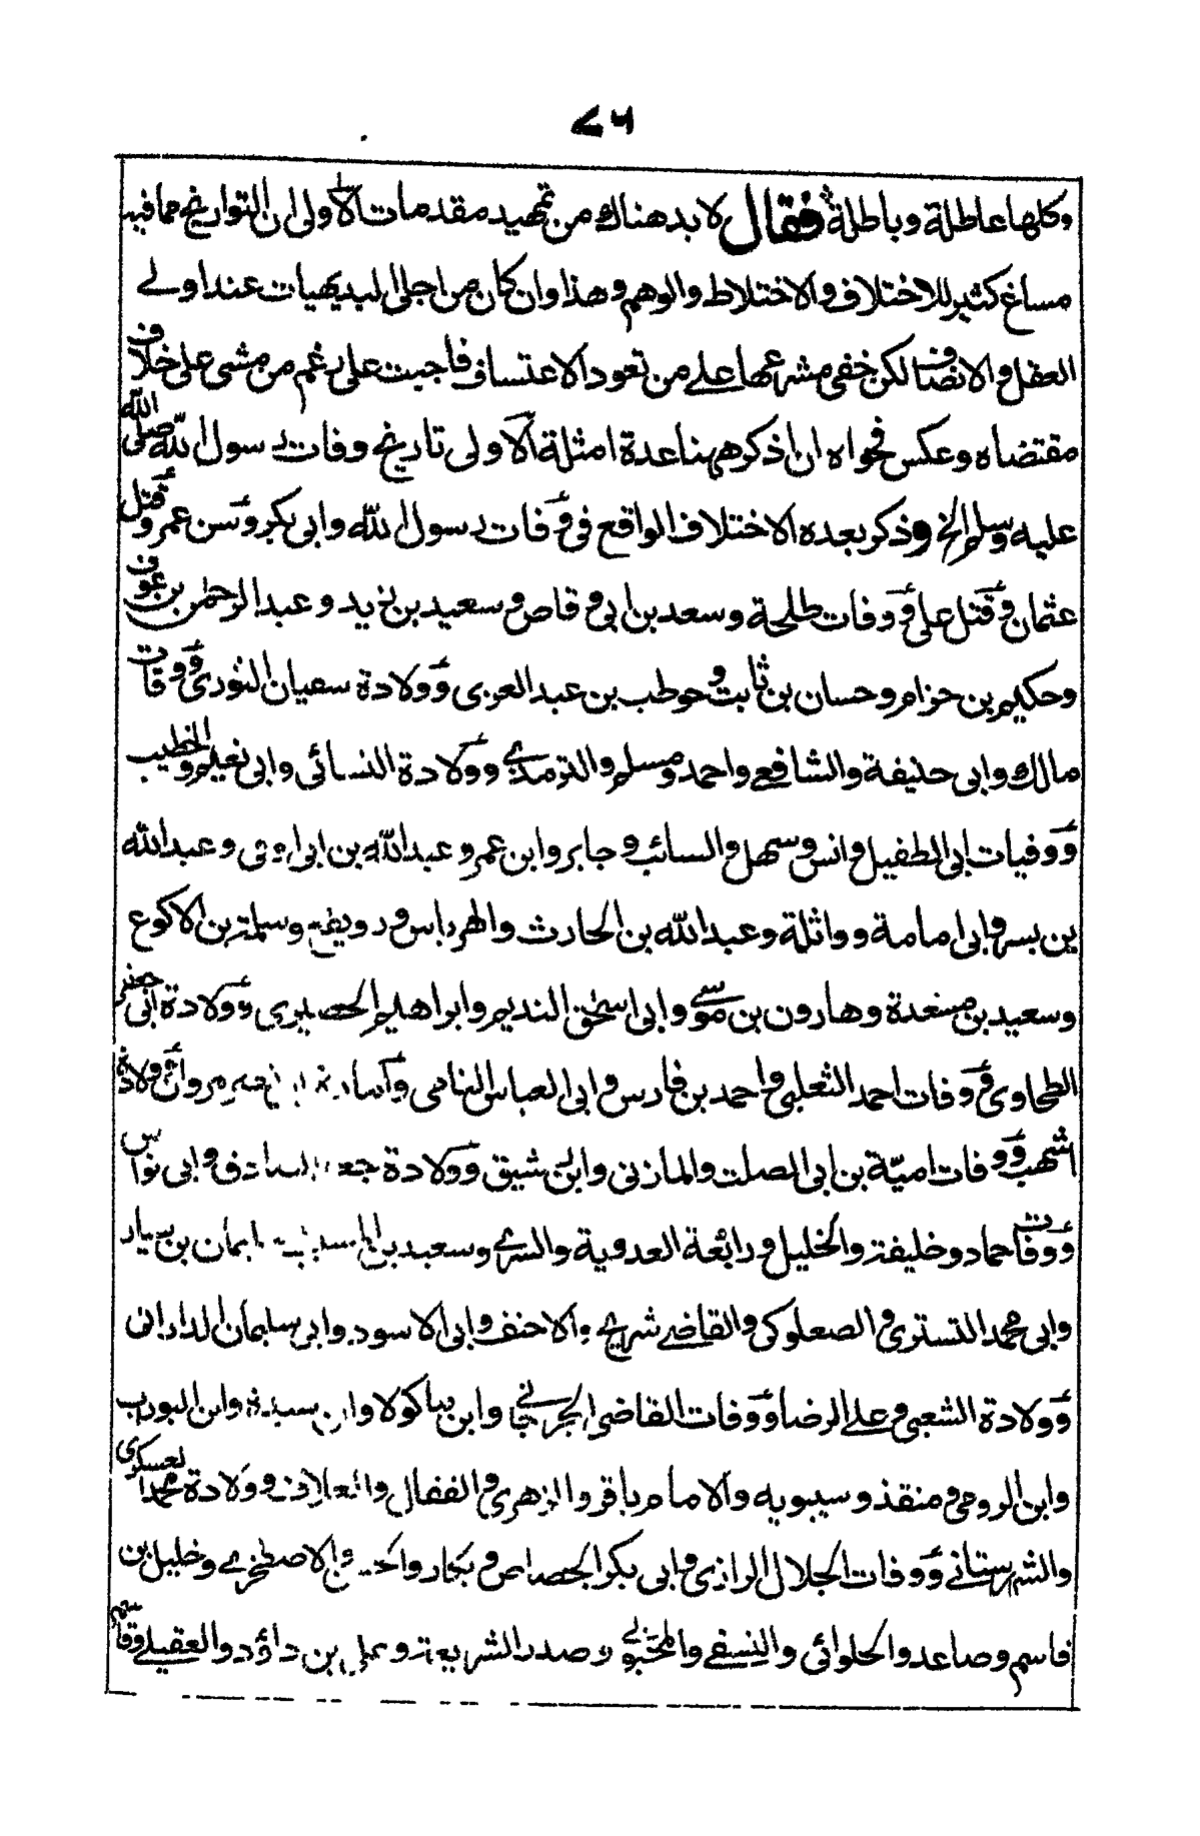 ٧٦
وكلها عاطلة وباطلة فقال لا بد هناك من تمهيد مقدمات الاولى ان التواريخ مما فيه
مساغ كثير للاختلاف والاختلاط والوهم وهذا وان كان من اجلى البديهيات عند اولے
العقل والانصاف لكن خفى مشرعها علے من تعود الاعتساف فاجبت على رغم من مشى على خلاف
مقتضاه وعكس فحواه ان اذكر ههنا عدة امثلة الاولى تاريخ وفات رسول الله صلى الله
عليه وسلم الخ وذكر بعده الاختلاف الواقع فى وفات رسول الله وابى بكر وسن عمر وقتل
عثمان وقتل على ووفات طلحة وسعد بن ابى وقاص وسعيد بن زيد وعبد الرحمن بن عوف
وحكيم بن حزام وحسان بن ثابت وحوطب بن عبد العزى وولادة سفيان الثورى ووفات
مالك وابى حنيفة والشافعے واحمد ومسلم والترمذے وولادة النسائى وابى نعيم والخطيب
ووفيات ابى الطفيل وانس وسهل والسائب وجابر وابن عمر وعبد الله بن ابى اوفى وعبد الله
بن بسر وابى امامة وواثلة وعبد الله بن الحارث والهرماس ورويفع وسلمة بن الاكوع
وسعيد بن مسعدة وهارون بن موسے وابى اسحق النديم وابراهيم الحصيرى وولادة ابى جعفر
الطحاوى ووفات احمد الثعلبى واحمد بن فارس وابى العباس النامى مروان وولادة
اشهب ووفات امية بن ابى الصلت والمازنى وابن رشيق وولادة الصادق وابى نواس
ووفات حماد وخليفة والخليل ورابعة العدوية والسرے وسعيد بن بن يسار
وابى محمد التسترى والصعلوكى والقاضے شريح والاحنف وابى الاسود وابى سليمان الدارانى
وولادة الشعبى وعلے الرضا ووفات القاضى الجرجانے وابن ماكولا وابن سيدة وابن البواب
وابن الرومى ومنقذ وسيبويه والامام باقر والزهرى والقفال والعلاف وولادة محمد العسكرى
والشهرستانے ووفات الجلال الرازى وابى بكر الجصاص وبكار والاصطخرے وخليل بن
قاسم وصاعد والحلوائى والنسفے والمحبوبى وصدر الشريعة وعلى بن داؤد والعقيلے